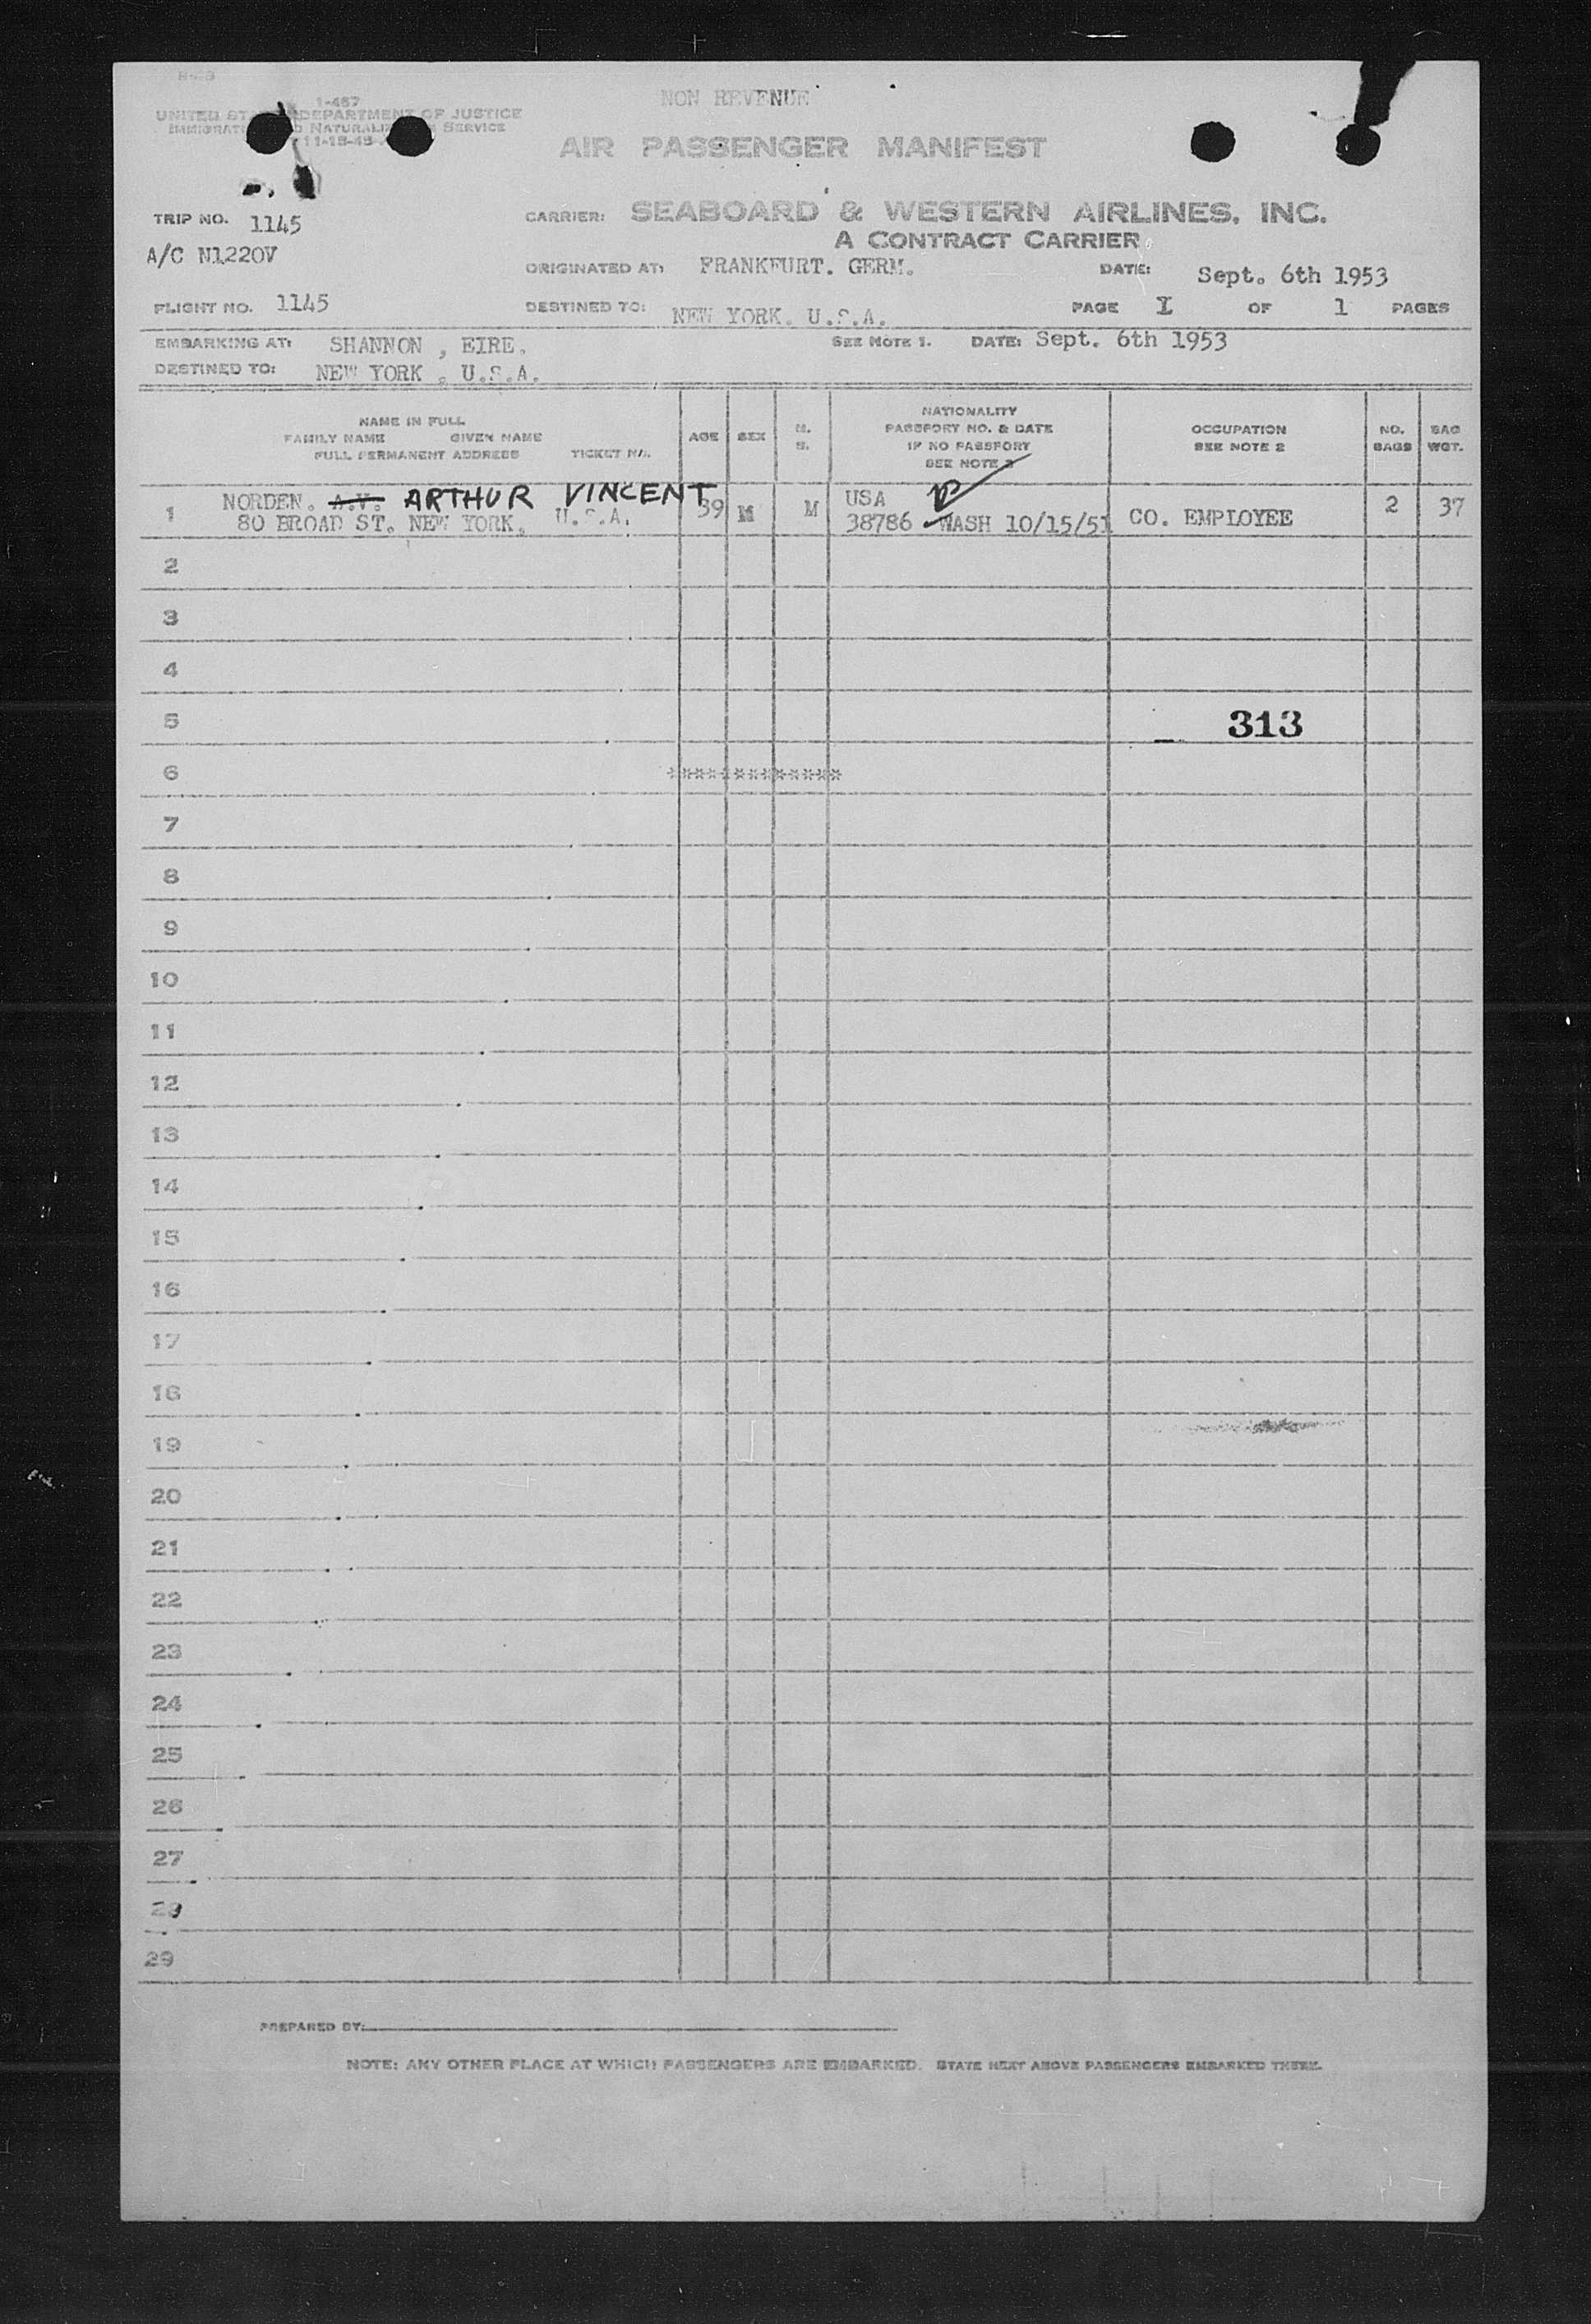 NON REVENUE
1-467
UNITED DEPARTMENT OF JUSTICE
SERVICE
AIR PASSENGER MANIFEST
TRIP NO. 1145
CARRIER: SEABOARD & WESTERN AIRLINES, INC.
A CONTRACT CARRIER
A/C N1220V
ORIGINATED AT: FRANKFURT. GERM. DATE: Sept. 6th 1953
FLIGHT NO. 1145 DESTINED TO: NEW YORK. U.S.A. PAGE I OF 1 PAGES
EMBARKING AT: SHANNON , EIRE. SEE NOTE 1. DATE: Sept. 6th 1953
DESTINED TO: NEW YORK , U.S.A.
NAME IN FULL
FAMILY NAME GIVEN NAME
FULL PERMANENT ADDRESS TICKET NO.
AGE
SEX
M.
S.
NATIONALITY
PASSPORT NO. & DATE
IF NO PASSPORT
SEE NOTE 3
OCCUPATION
SEE NOTE 2
NO.
BAGS
BAG
WGT.
1 NORDEN. A.V. ARTHUR VINCENT 39 M M USA 2 37
80 BROAD ST. NEW YORK. U.S.A. 38786 WASH 10/15/51 CO. EMPLOYEE
2
3
4
5 313
6 *************
7
8
9
10
11
12
13
14
15
16
17
18
19
20
21
22
23
24
25
26
27
28
29
PREPARED BY:
NOTE: ANY OTHER PLACE AT WHICH PASSENGERS ARE EMBARKED. STATE NEXT ABOVE PASSENGERS EMBARKED THERE.